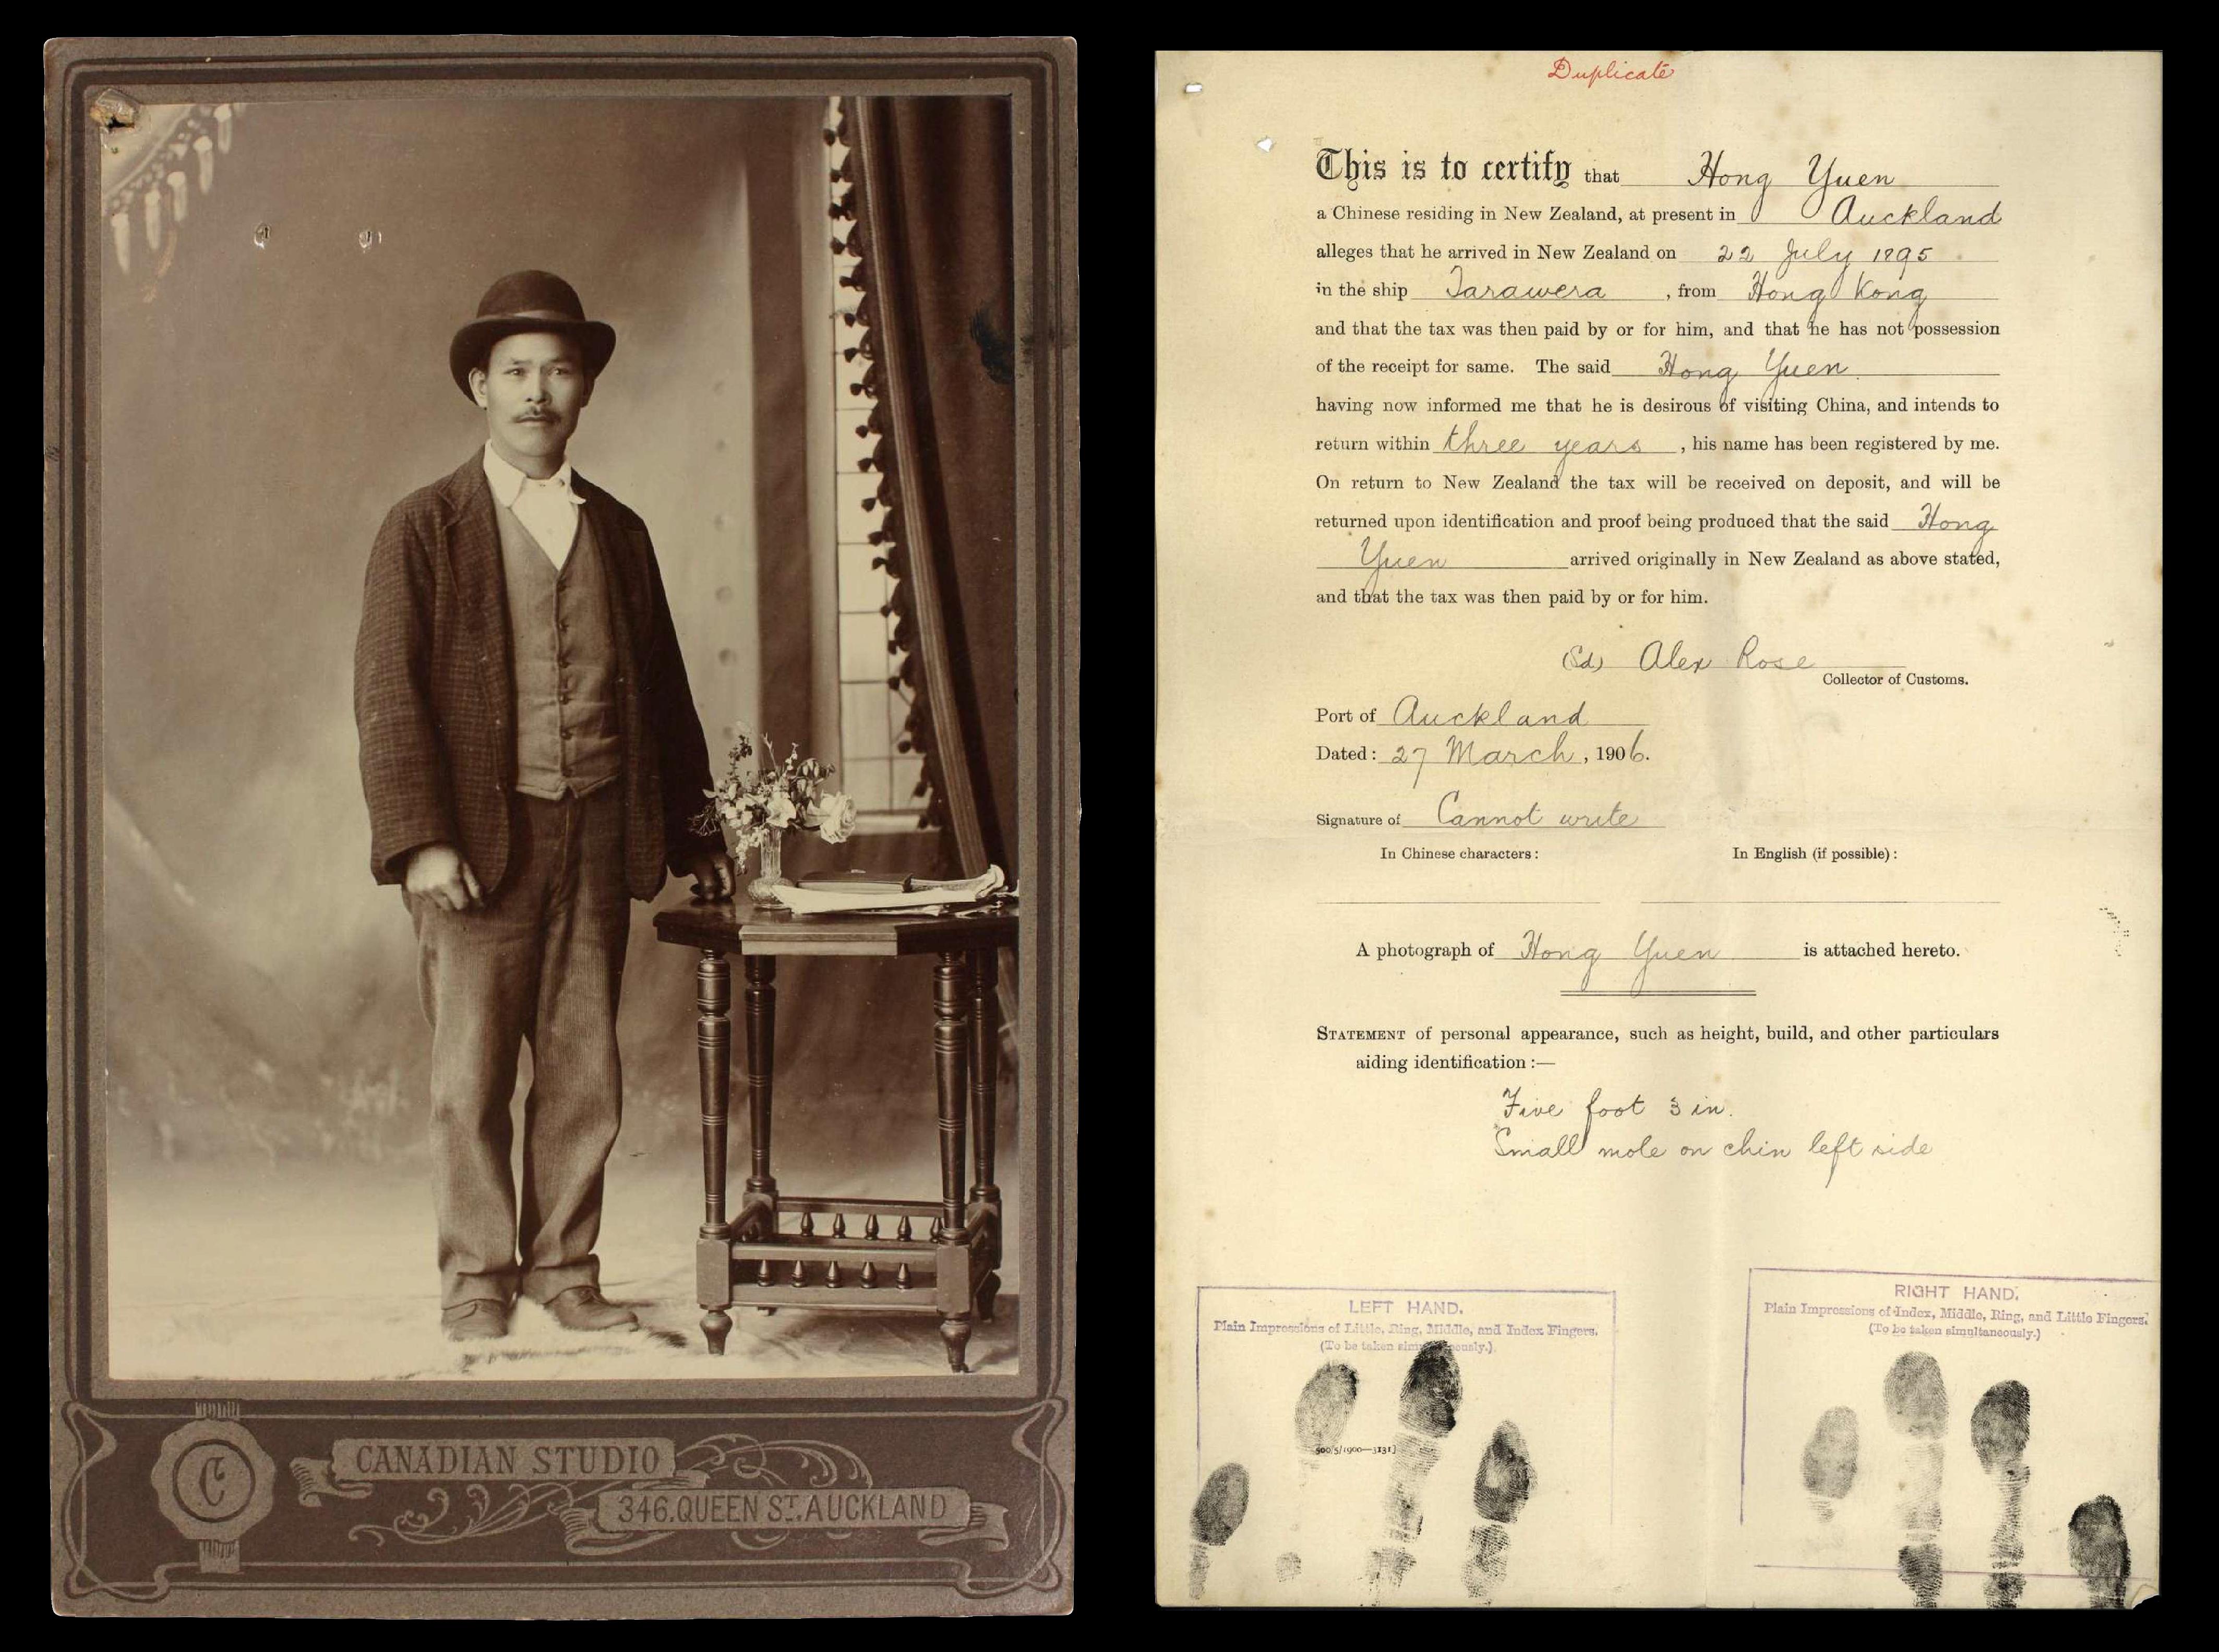 C
CANADIAN STUDIO
346.QUEEN ST. AUCKLAND
Duplicate
This is to certify that Hong Yuen
a Chinese residing in New Zealand, at present in Auckland
alleges that he arrived in New Zealand on 22 July 1895
in the ship Tarawera , from Hong Kong
and that the tax was then paid by or for him, and that he has not possession
of the receipt for same. The said Hong Yuen
having now informed me that he is desirous of visiting China, and intends to
return within three years , his name has been registered by me.
On return to New Zealand the tax will be received on deposit, and will be
returned upon identification and proof being produced that the said Hong
Yuen arrived originally in New Zealand as above stated,
and that the tax was then paid by or for him.
(Sd) Alex Rose
Collector of Customs.
Port of Auckland
Dated: 27 March, 1906.
Signature of Cannot write
In Chinese characters: In English (if possible):
A photograph of Hong Yuen is attached hereto.
STATEMENT of personal appearance, such as height, build, and other particulars
aiding identification:—
Five foot 3 in.
Small mole on chin left side
LEFT HAND.
Plain Impressions of Little, Ring, Middle, and Index Fingers.
(To be taken simultaneously.)
500/5/1900—3131]
RIGHT HAND.
Plain Impressions of Index, Middle, Ring, and Little Fingers.
(To be taken simultaneously.)